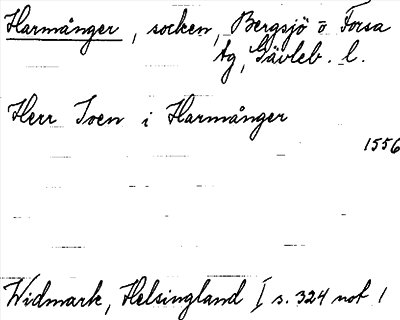 Harmånger, socken, Bergsjö o Forsa
tg, Gävleb. l.
Herr Joen i Harmånger
1556
Widmark, Helsingland I s. 324 not 1